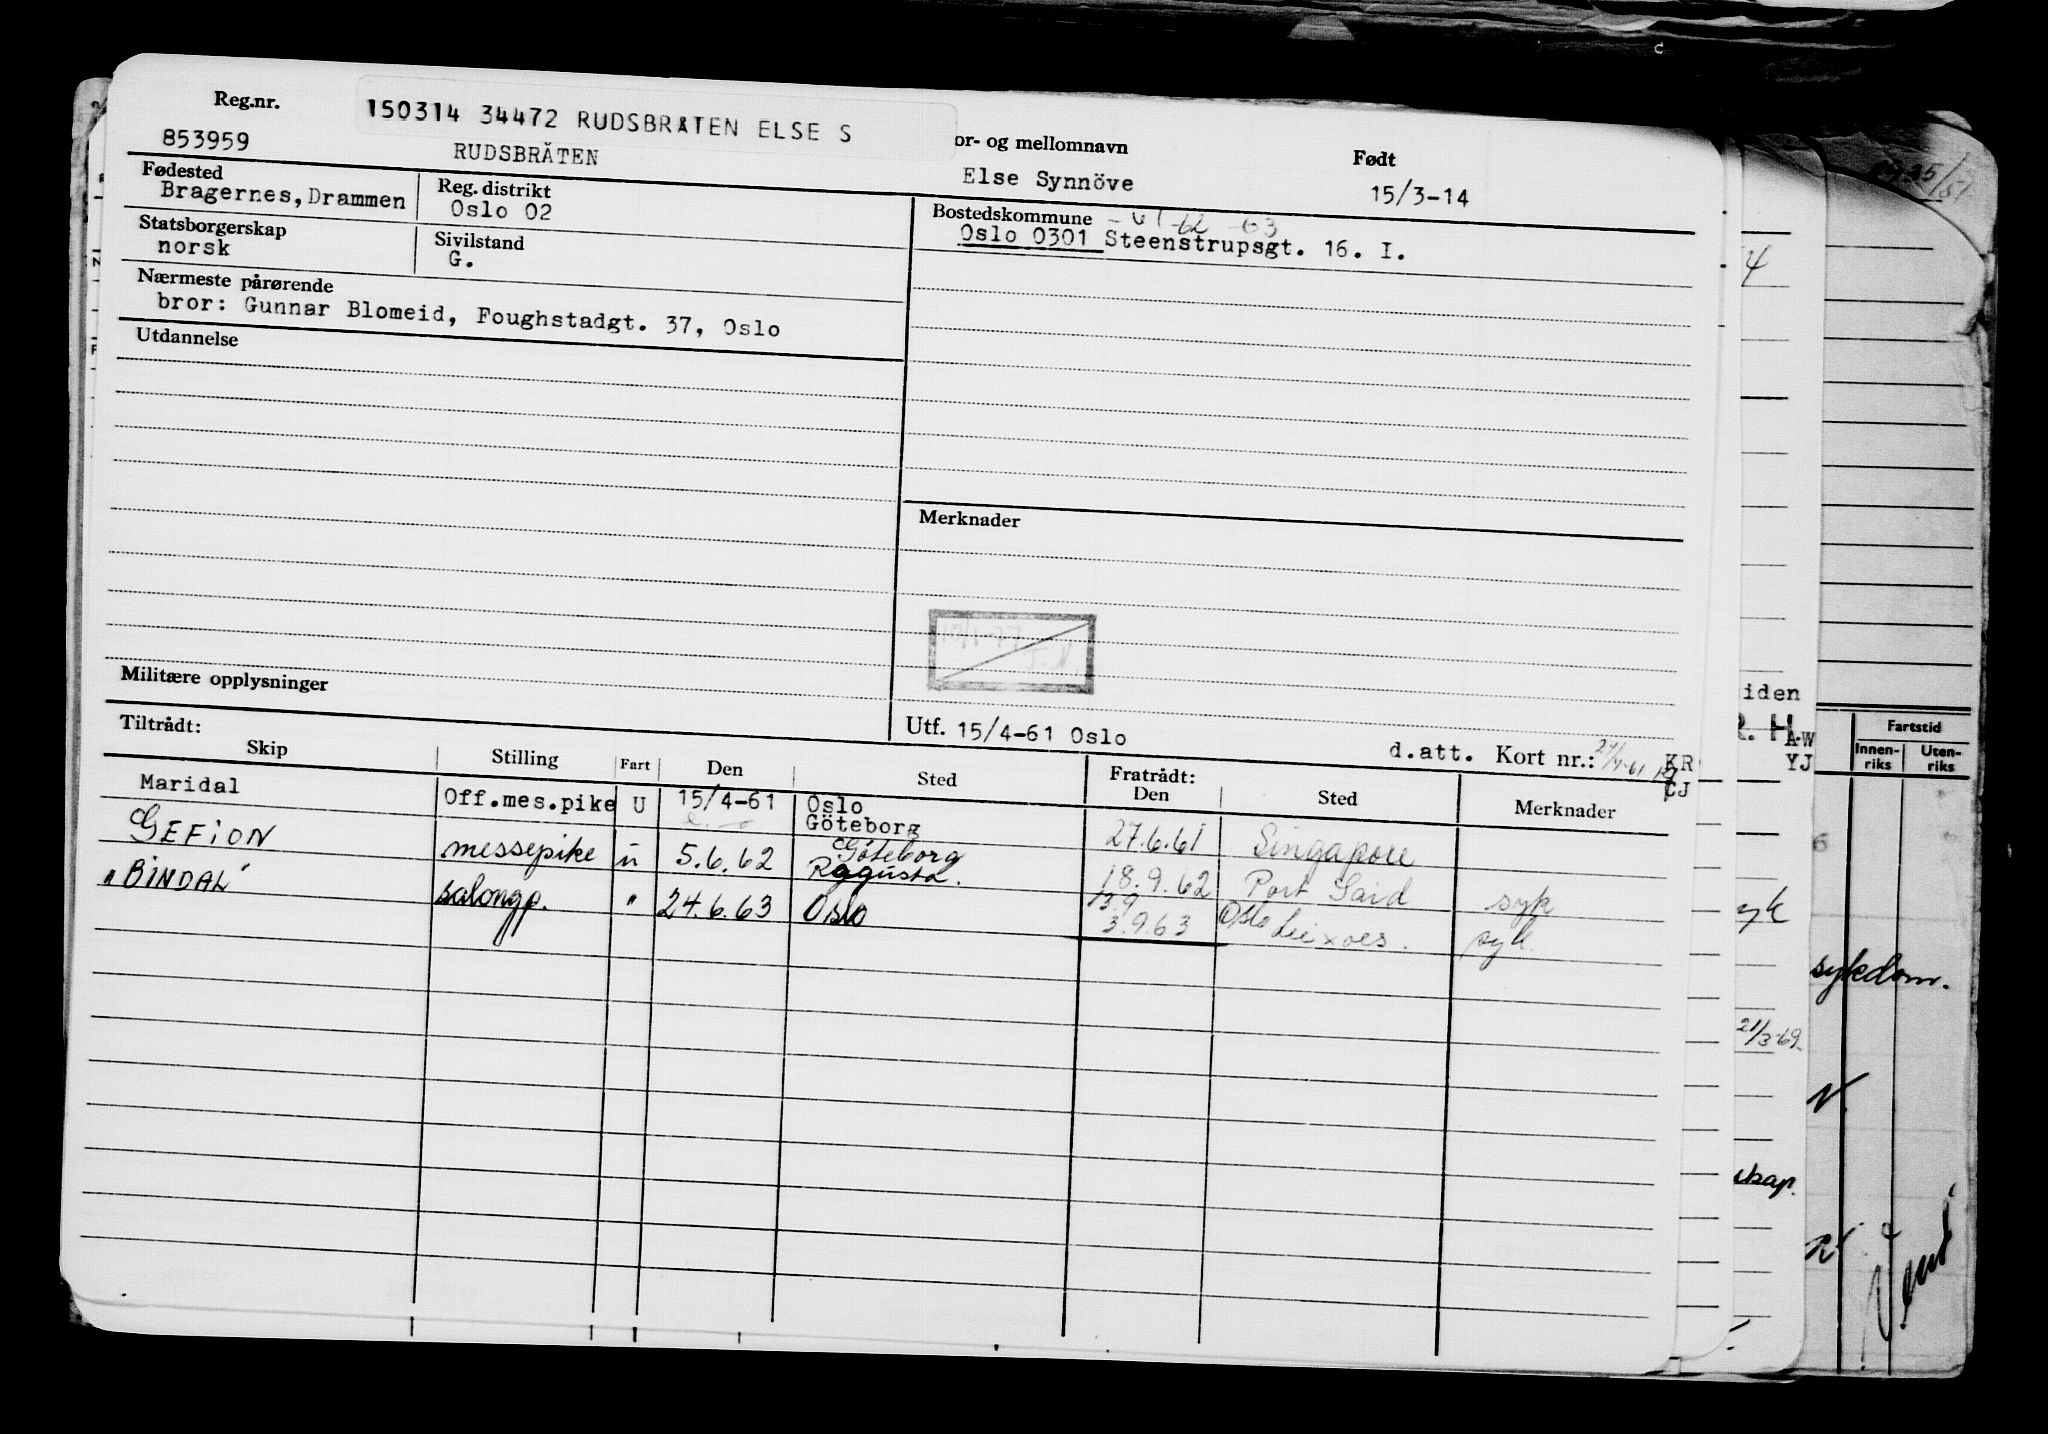 Reg.nr.
150314 34472 RUDSBRATEN ELSE S
or- og mellomnavn
Født
853959
RUDSBRÅTEN
Else Synnöve
15/3-14
Fødested
Bragernes, Drammen
Reg. distrikt
Oslo 02
Bostedskommune
-61 -62 -63
Oslo 0301 Steenstrupsgt. 16. I.
Statsborgerskap
norsk
Sivilstand
G.
Nærmeste pårørende
bror: Gunnar Blomeid, Foughstadgt. 37, Oslo
Utdannelse
Merknader
Militære opplysninger
Utf. 15/4-61 Oslo
d.att. Kort nr.:
Tiltrådt:
Fratrådt:
Skip Stilling Fart Den Sted Den Sted Merknader
Maridal Off.mes.pike U 15/4-61 Oslo
Göteborg 27.6.61 Singapore
GEFION messepike u 5.6.62 Göteborg
18.9.62 Port Said syk
"BINDAL" salongp. " 24.6.63 Oslo 13.9 Oslo
3.9.63 Leixoes. syk.
iden
R. H
A-W
YJ
KR
CJ
Fartstid
Innen-
riks
Uten-
riks
yk
sykdom.
21/3-69